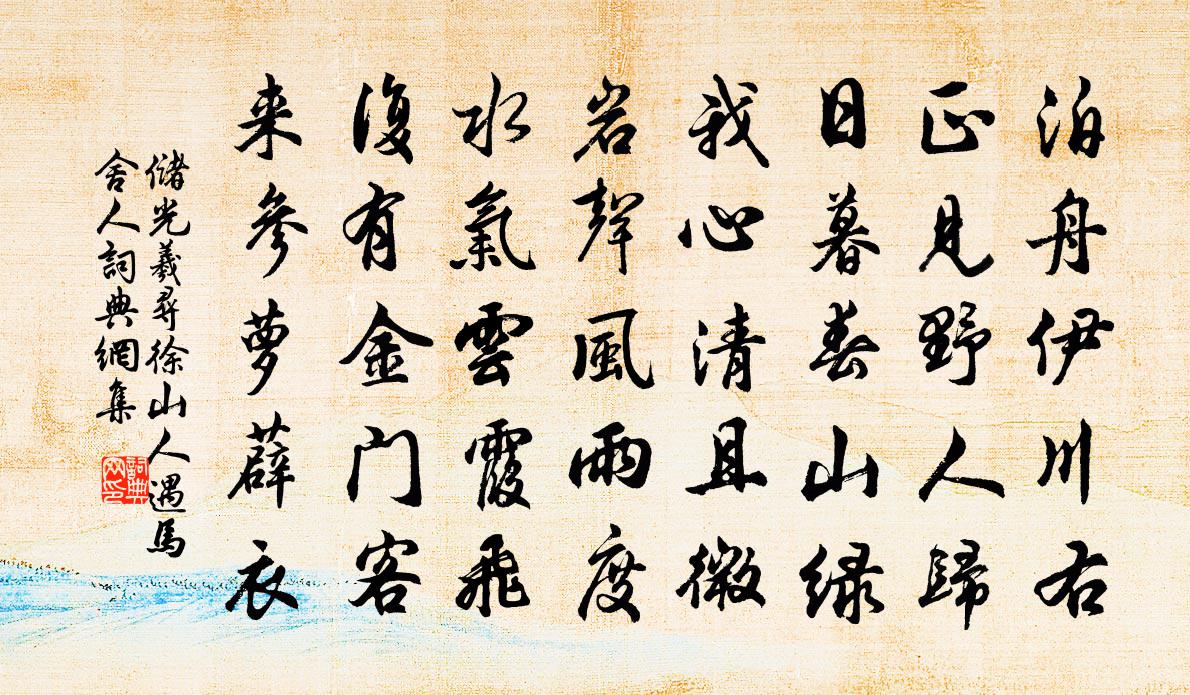 泊舟伊川右
正见野人歸
日暮春山绿
我心清且微
岩聲風雨度
水氣雲霞飛
復有金门客
来参萝薜衣
儲光羲尋徐山人遇馬
舍人詞典網集
詞典
网印